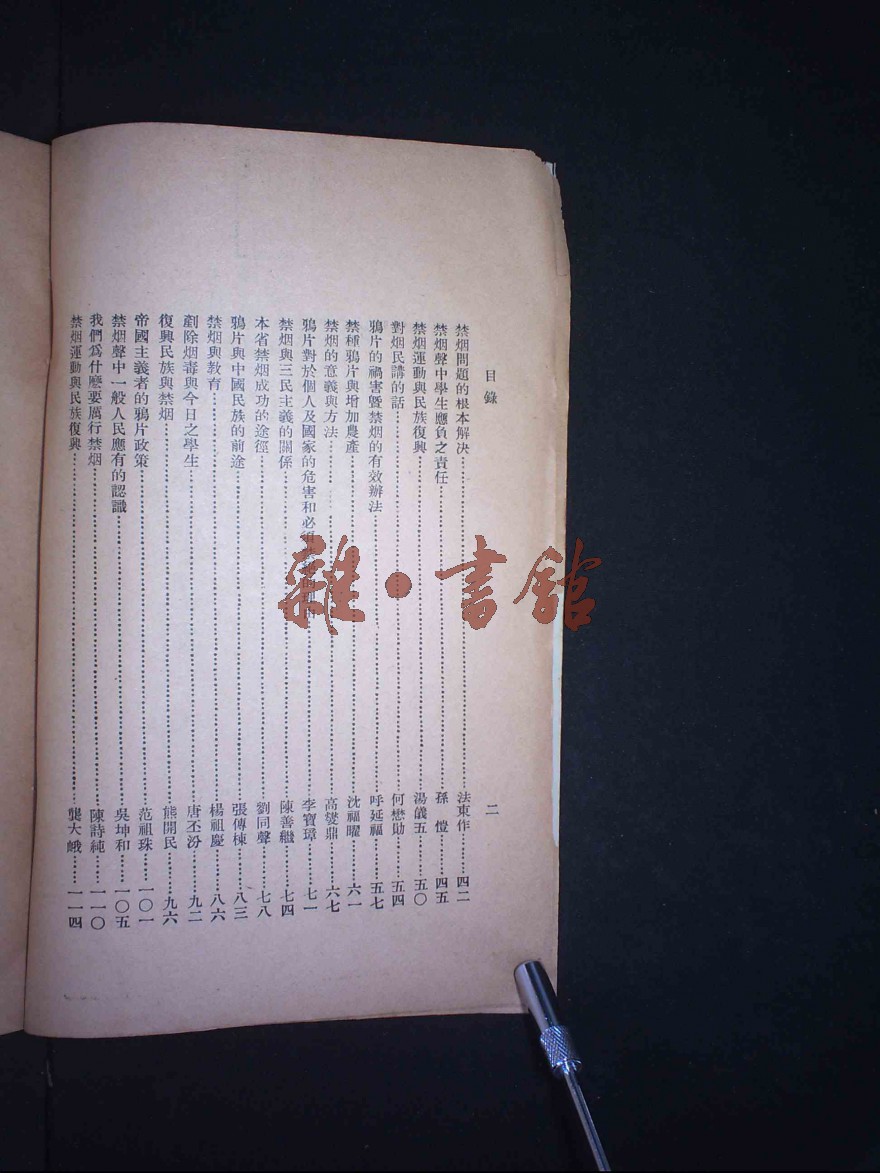 目錄
二
禁烟問題的根本解决……法東作……四二
禁烟聲中學生應負之責任……孫 愷……四五
禁烟運動與民族復興……湯儀五……五〇
對烟民講的話……何懋勛……五四
鴉片的禍害暨禁烟的有效辦法……呼延福……五七
禁種鴉片與增加農產……沈福曜……六一
禁烟的意義與方法……高燮鼎……六七
鴉片對於個人及國家的危害和必須……李寶璋……七一
禁烟與三民主義的關係……陳善繼……七四
本省禁烟成功的途徑……劉同聲……七八
鴉片與中國民族的前途……張傳棟……八三
禁烟與教育……楊祖慶……八六
剷除烟毒與今日之學生……唐丕汾……九二
復興民族與禁烟……熊開民……九六
帝國主義者的鴉片政策……范祖珠……一〇一
禁烟聲中一般人民應有的認識……吳坤和……一〇五
我們爲什麽要厲行禁烟……陳詩純……一一〇
禁烟運動與民族復興……龔大峨……一一四
雜·書館